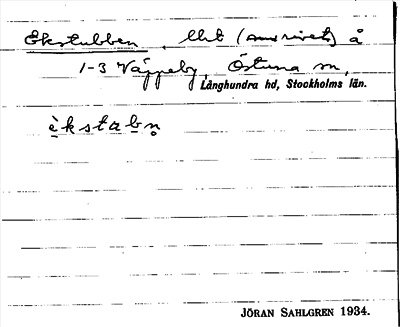 Ekstubben, llht (numrivet) å
1-3 Väppeby, Östuna sn,
Långhundra hd, Stockholms län.
èkstabn̥
JÖRAN SAHLGREN 1934.